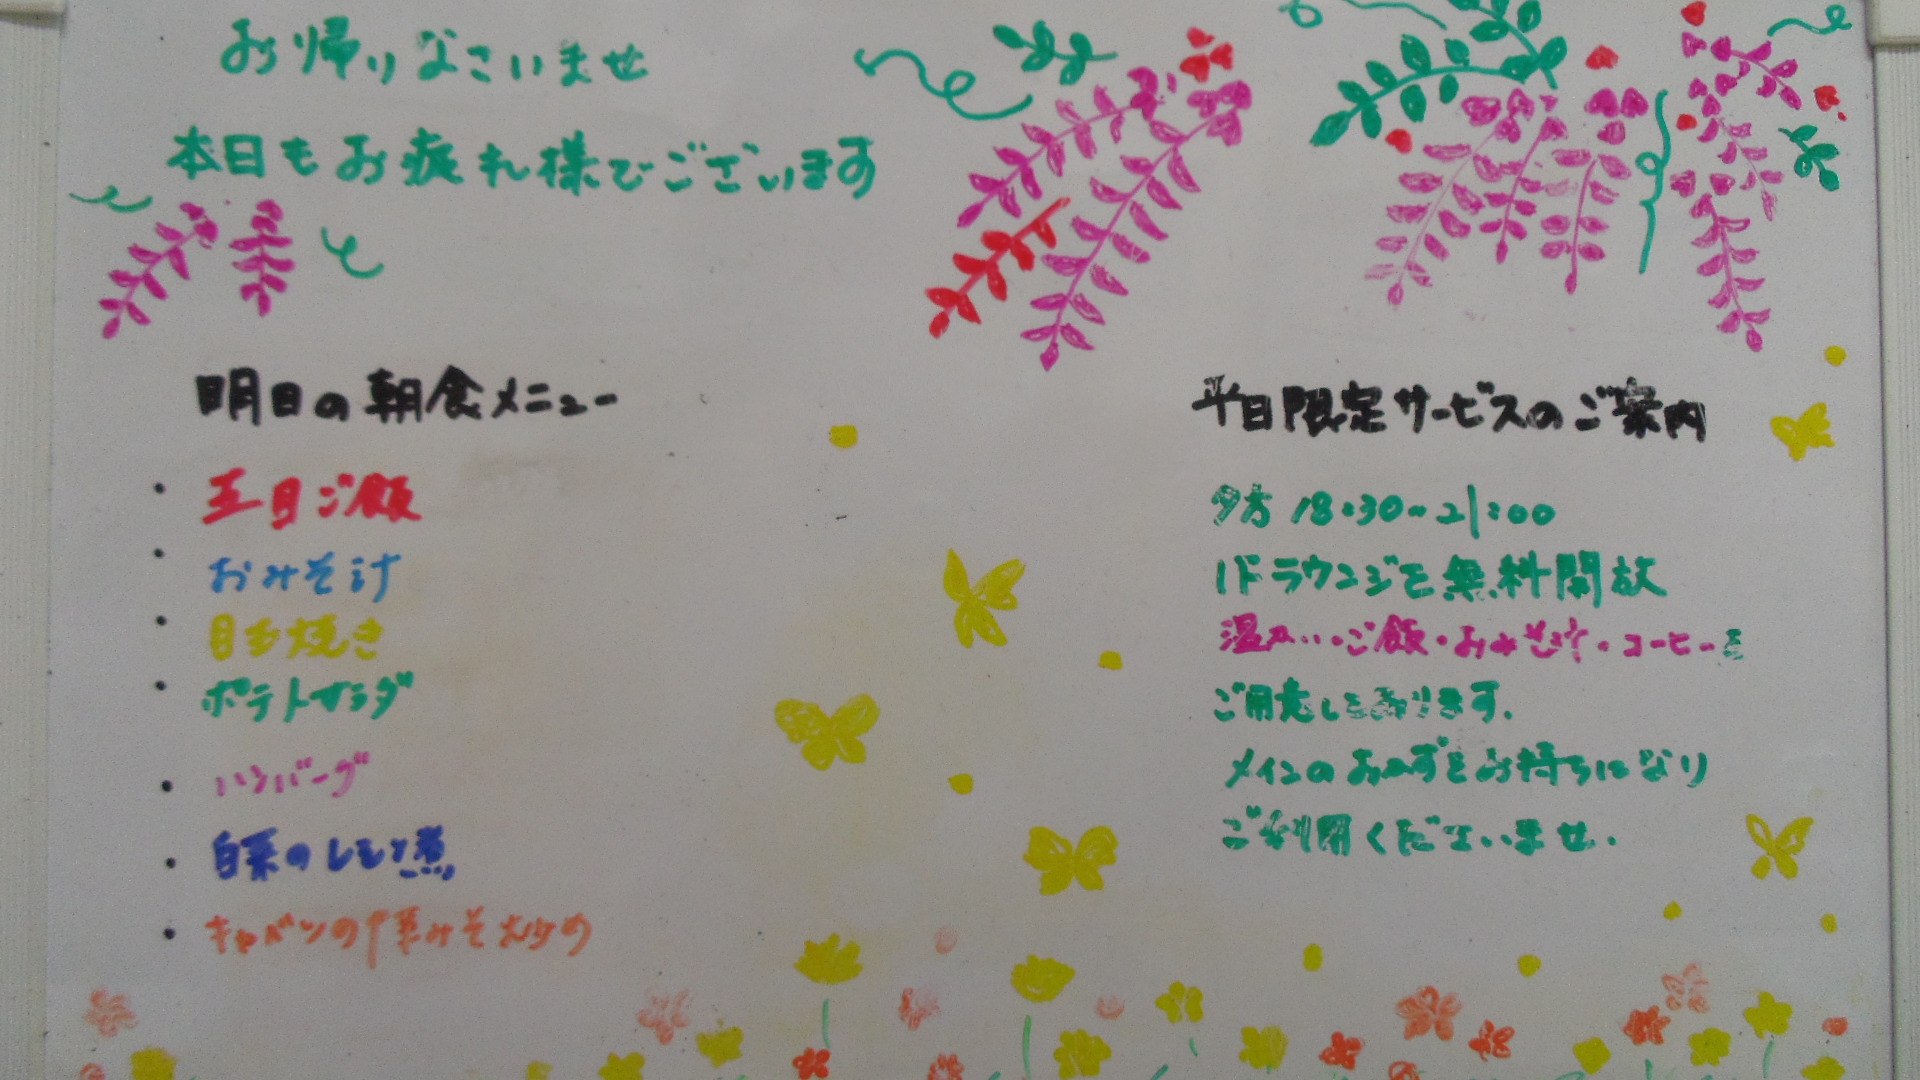 お帰りなさいませ
本日もお疲れ様でございます
明日の朝食メニュー
・五目ご飯
・おみそ汁
・目玉焼き
・ポテトサラダ
・ハンバーグ
・白菜のレモン煮
・キャベツの味みそ炒め
平日限定サービスのご案内
夕方 18:30~21:00
1Fラウンジを無料開放
温かい・ご飯・おみそ汁・コーヒーを
ご用意しております.
メインのおかずをお持ちになり
ご利用くださいませ.